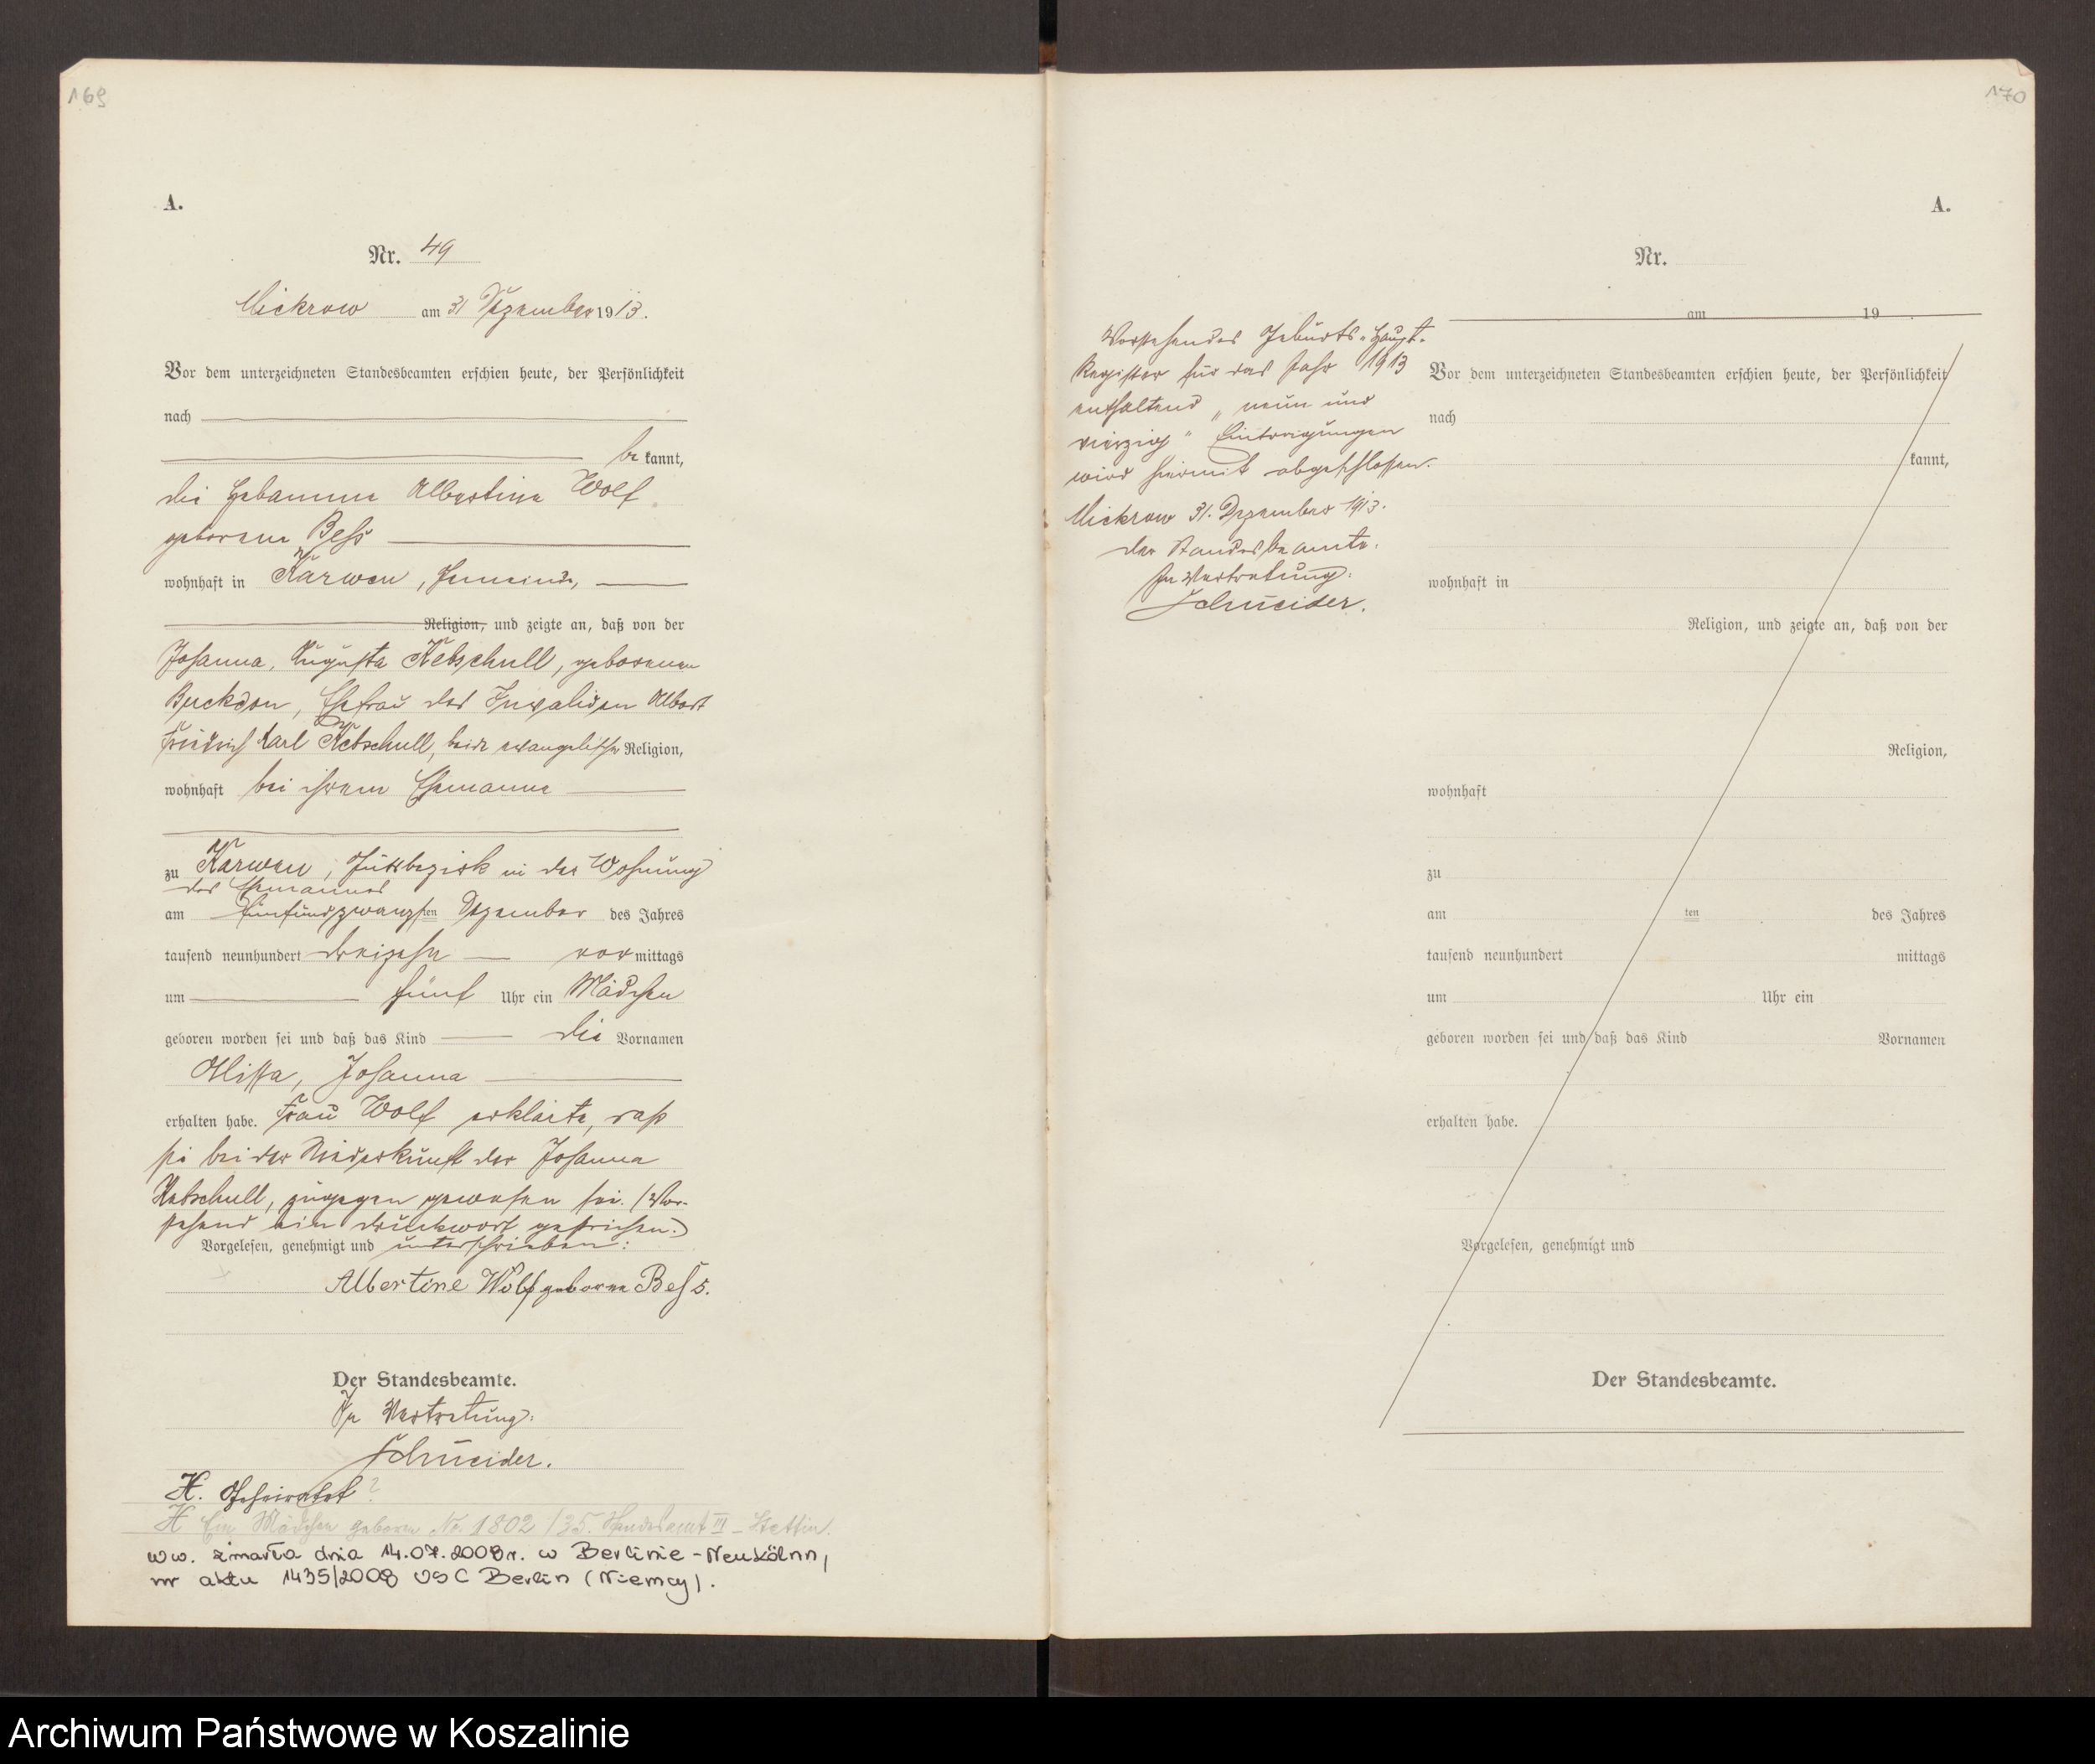 169
A.
Nr. 49
Mickrow am 31 Dezember 1913.
Vor dem unterzeichneten Standesbeamten erschien heute, der Persönlichkeit
nach
be kannt,
die Hebamme Albertine Wolf
geborene Bess
wohnhaft in Karwen, Gemeinde,
Religion, und zeigte an, daß von der
Johanna, Augusta Kebschull, geborenen
Ehefrau des Invaliden Albert
Friedrich Karl Kebschull, beide evangelischer Religion,
wohnhaft bei ihrem Ehemanne
zu Karwen, Gutsbezirk in der Wohnung
des Ehemannes
am fünfundzwanzigsten Dezember des Jahres
tausend neunhundert dreizehn vor mittags
um fünf Uhr ein Mädchen
geboren worden sei und daß das Kind die Vornamen
Johanna
erhalten habe. Frau Wolf erklärte, daß
sie bei der Niederkunft der Johanna
Kebschull, zugegen gewesen sei. (Vor-
stehend ein Druckwort gestrichen.)
Vorgelesen, genehmigt und unterschrieben:
Albertine Wolf geborene Bess.
Der Standesbeamte.
In Vertretung:
Schneider.
H. Geheiratet?
H Ein Mädchen geboren No. 1802/35. Standesamt III - Stettin.
ww. zmarła dnia 14.07.2008r. w Berlinie-Neukölnn,
nr aktu 1435/2008 USC Berlin (Niemcy).
170
A.
Nr.
am 19
Vorstehendes Geburts-Haupt-
Register für das Jahr 1913
enthaltend „neun und
vierzig" Eintragungen
wird hiermit abgeschlossen.
Mickrow 31. Dezember 1913.
Der Standesbeamte.
In Vertretung:
Schneider.
Vor dem unterzeichneten Standesbeamten erschien heute, der Persönlichkeit
nach
kannt,
wohnhaft in
Religion, und zeigte an, daß von der
Religion,
wohnhaft
zu
am ten des Jahres
tausend neunhundert mittags
um Uhr ein
geboren worden sei und daß das Kind Vornamen
erhalten habe.
Vorgelesen, genehmigt und
Der Standesbeamte.
Archiwum Państwowe w Koszalinie